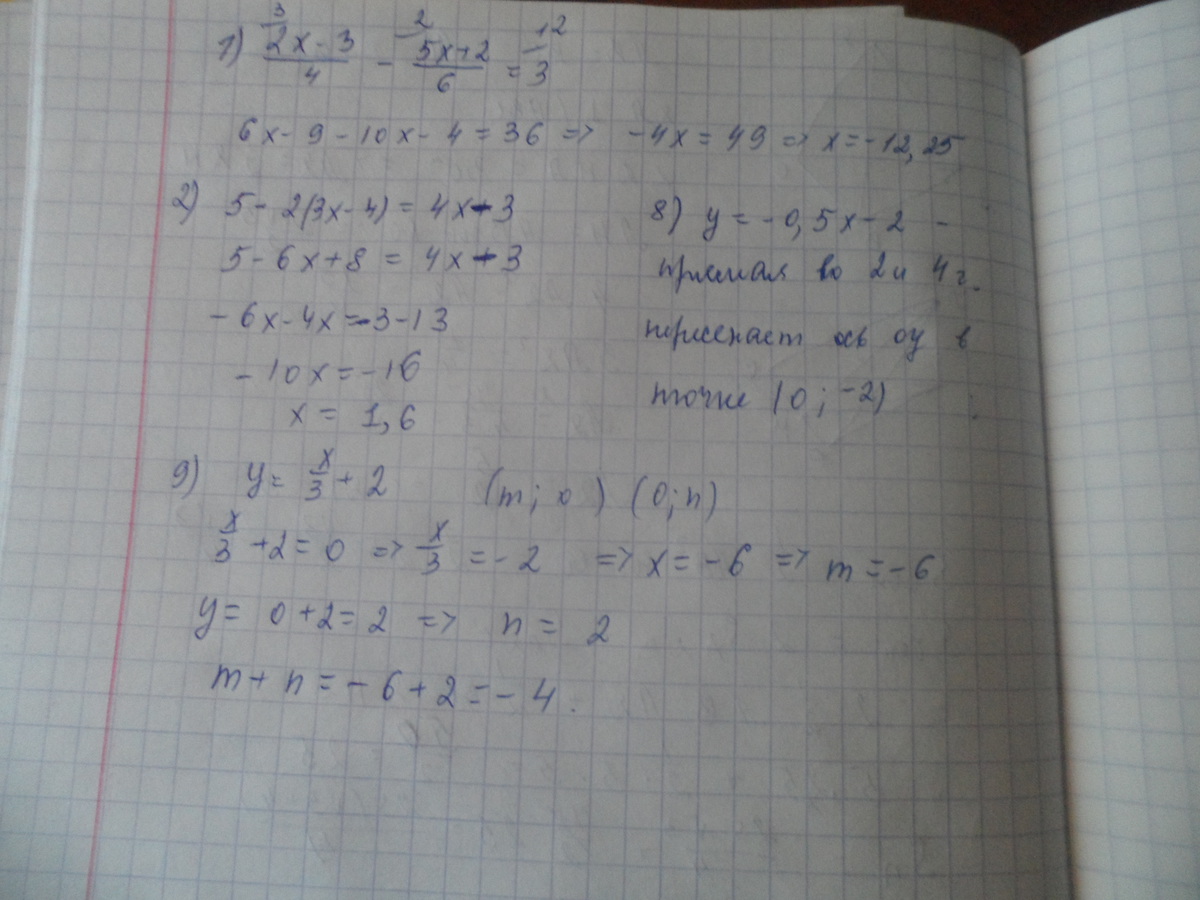 3 2 12
1) (2x-3)/4 - (5x+2)/6 = 3
6x-9-10x-4=36 => -4x=49 => x=-12,25
2) 5-2(3x-4)=4x-3
5-6x+8=4x-3
-6x-4x=-3-13
-10x=-16
x=1,6
8) y=-0,5x-2 -
прямая во 2 и 4 г.
пересекает ось oy в
точке (0;-2)
9) y=x/3+2 (m;0) (0;n)
x/3+2=0 => x/3=-2 => x=-6 => m=-6
y=0+2=2 => n=2
m+n=-6+2=-4.